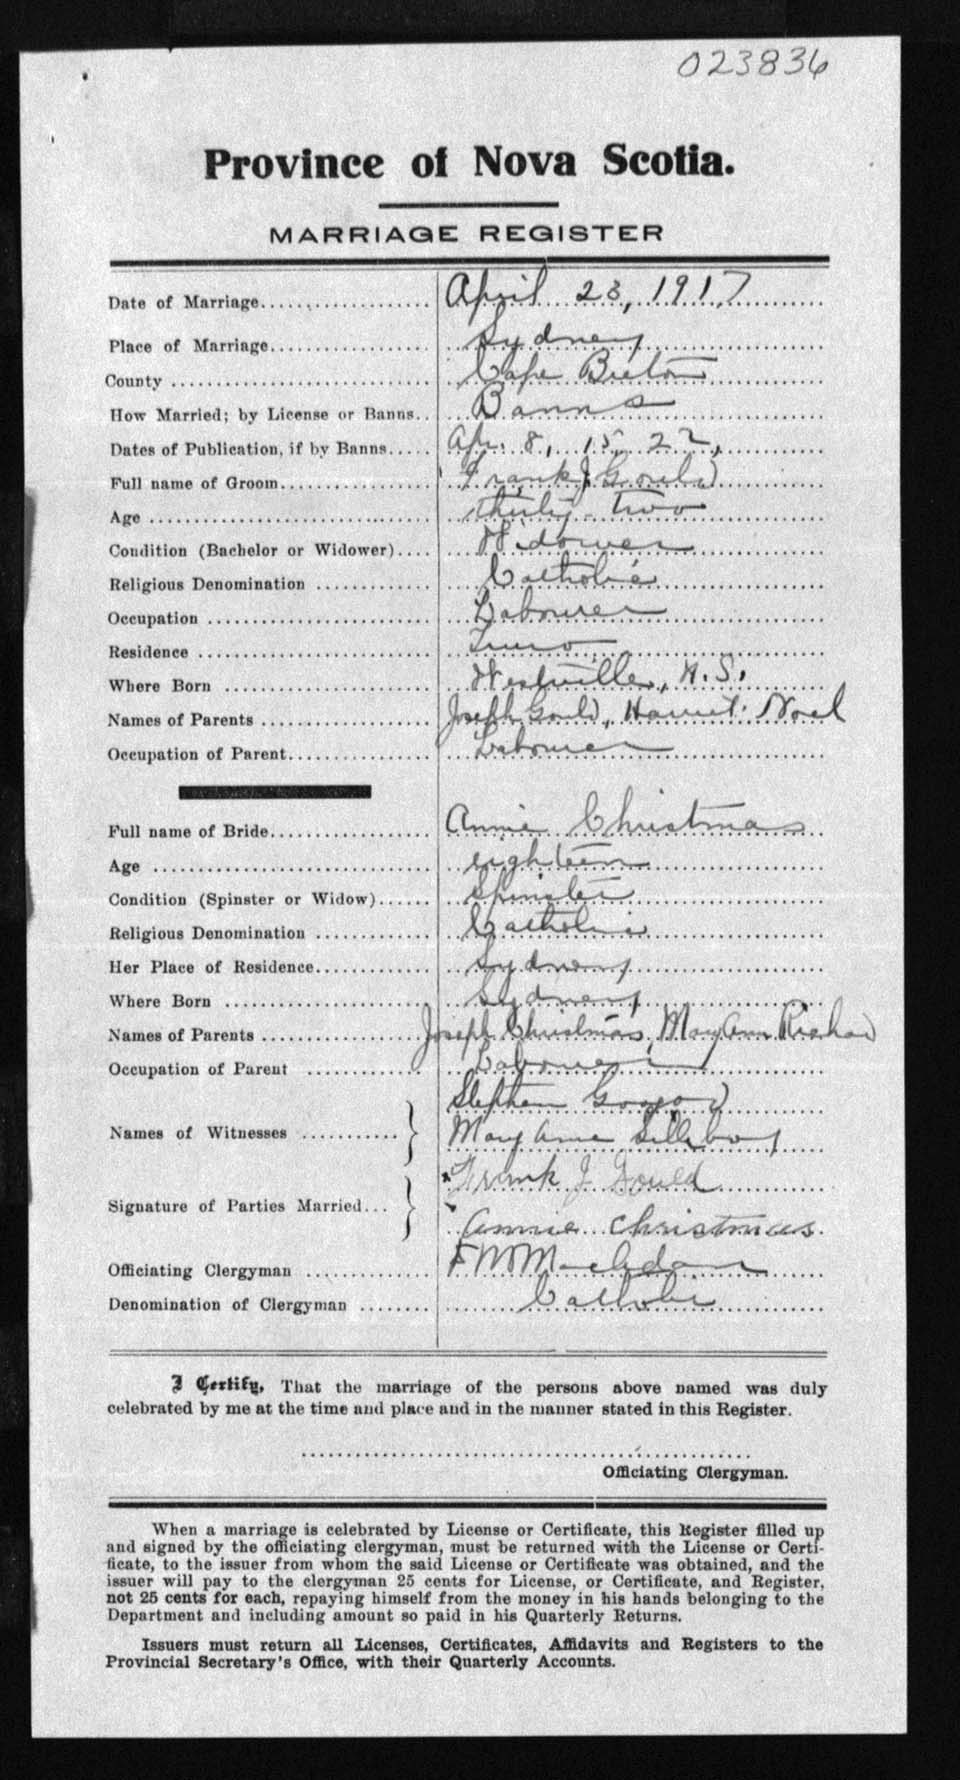 023836
Province of Nova Scotia.
MARRIAGE REGISTER
Date of Marriage April 23, 1917
Place of Marriage Sydney
County Cape Breton
How Married; by License or Banns Banns
Dates of Publication, if by Banns Apr. 8, 15, 22,
Full name of Groom Frank J Gould
Age thirty-two
Condition (Bachelor or Widower) Widower
Religious Denomination Catholic
Occupation Labourer
Residence Truro
Where Born Westville, N.S.
Names of Parents Joseph Gould, Harriet Noel
Occupation of Parent Labourer
Full name of Bride Annie Christmas
Age eighteen
Condition (Spinster or Widow) Spinster
Religious Denomination Catholic
Her Place of Residence Sydney
Where Born Sydney
Names of Parents Joseph Christmas, Mary Ann
Occupation of Parent Labourer
Stephen
Names of Witnesses Mary Anne
Frank J Gould
Signature of Parties Married
Annie Christmas
Officiating Clergyman
Denomination of Clergyman Catholic
I Certify, That the marriage of the persons above named was duly
celebrated by me at the time and place and in the manner stated in this Register.
Officiating Clergyman.
When a marriage is celebrated by License or Certificate, this Register filled up
and signed by the officiating clergyman, must be returned with the License or Certi-
ficate, to the issuer from whom the said License or Certificate was obtained, and the
issuer will pay to the clergyman 25 cents for License, or Certificate, and Register,
not 25 cents for each, repaying himself from the money in his hands belonging to the
Department and including amount so paid in his Quarterly Returns.
Issuers must return all Licenses, Certificates, Affidavits and Registers to the
Provincial Secretary's Office, with their Quarterly Accounts.